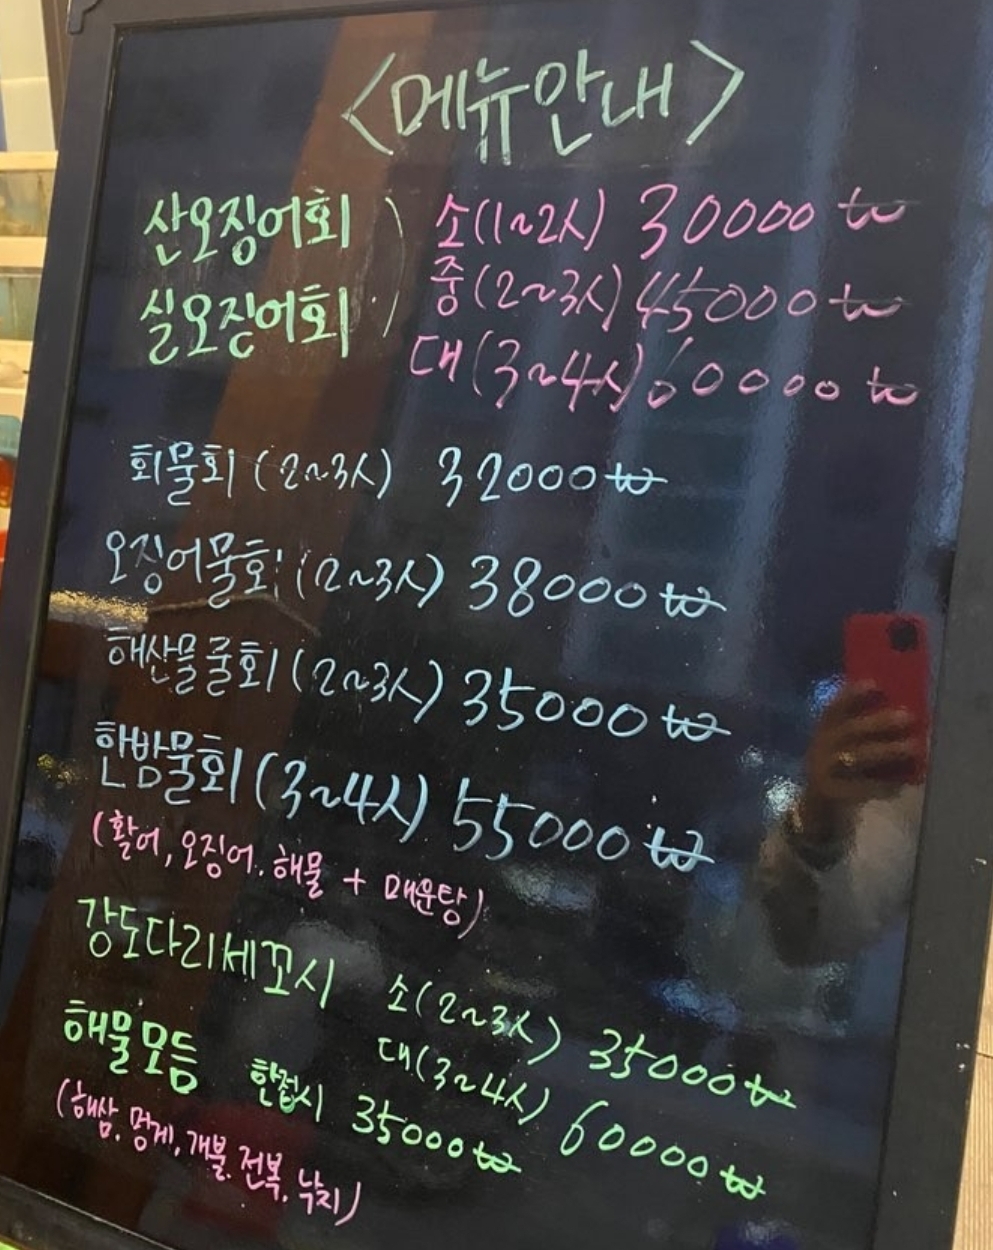 <메뉴안내>
산오징어회 ) 소(1~2人) 30000₩
실오징어회 ) 중(2~3人) 45000₩
대(3~4人) 60000₩
회물회 (2~3人) 32000₩
오징어물회 (2~3人) 38000₩
해산물물회 (2~3人) 35000₩
한밤물회 (3~4人) 55000₩
(활어, 오징어, 해물 + 매운탕)
강도다리세꼬시 소(2~3人) 35000₩
대(3~4人) 60000₩
해물모듬 한접시 35000₩
(해삼, 멍게, 개불, 전복, 낙지)